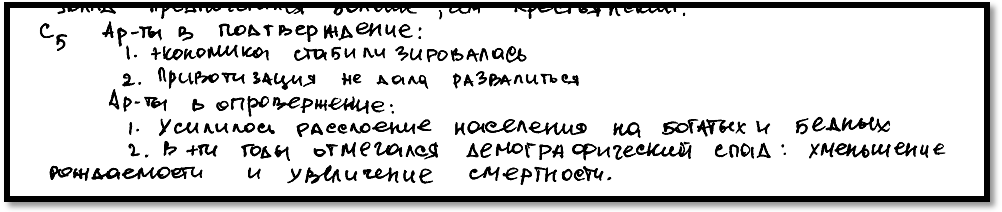 С5 Ар-ты в подтверждение:
1. Экономика стабилизировалась
2. Приватизация не дала развалиться
Ар-ты в опровержение:
1. Усилилось расслоение населения на богатых и бедных
2. В эти годы отмечался демографический спад: уменьшение
рождаемости и увеличение смертности.